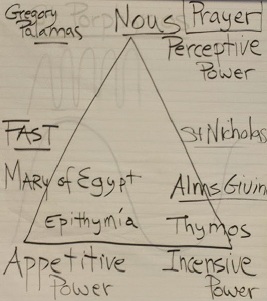 Gregory
Palamas
Nous
Prayer
Perceptive
Power
FAST
St Nicholas
Mary of Egypt
Alms Givin
Epithymía
Thymos
Appetitive
Power
Incensive
Power